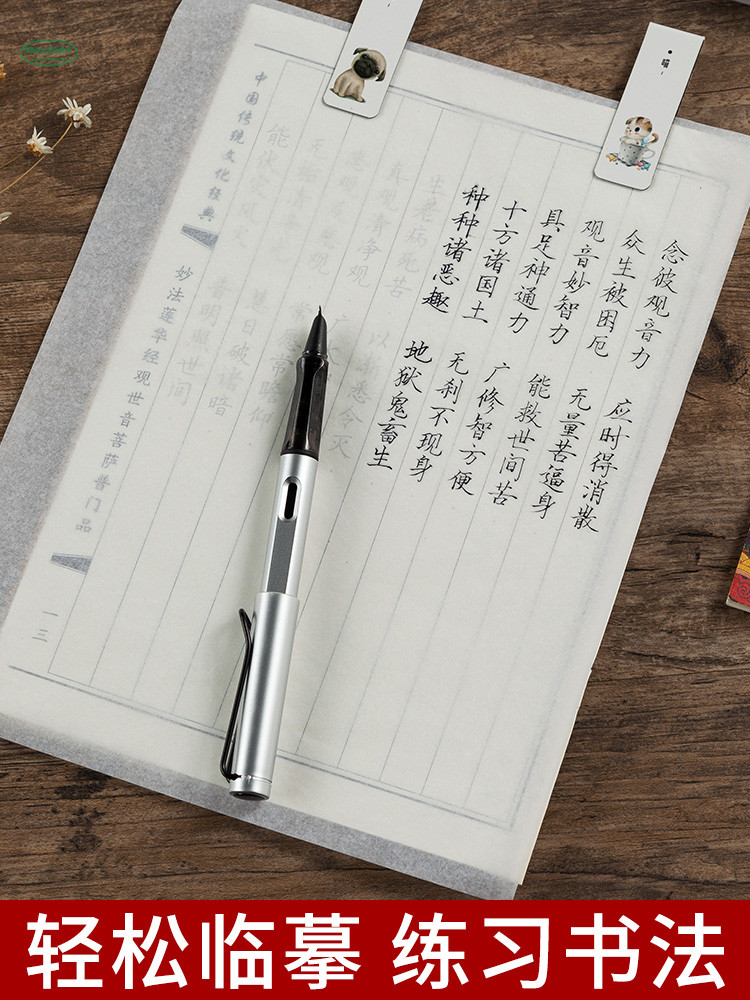 念彼观音力 应时得消散
众生被困厄 无量苦逼身
观音妙智力 能救世间苦
具足神通力 广修智方便
十方诸国土 无刹不现身
种种诸恶趣 地狱鬼畜生
生老病死苦 以渐悉令灭
真观清净观 广
常瞻仰
无垢 日破诸暗
能伏灾风 普明照世间
中国传统文化经典
妙法莲华经观世音菩萨普门品
一三
喵~
轻松临摹 练习书法